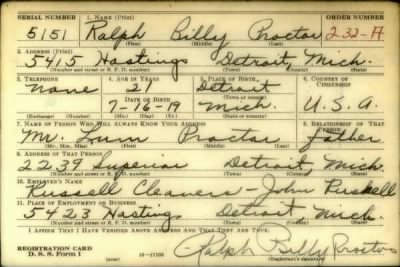 SERIAL NUMBER 1. NAME (Print) ORDER NUMBER
5151 Ralph Billy Proctor 232-A
(First) (Middle) (Last)
2. ADDRESS (Print)
5415 Hastings Detroit, Mich.
(Number and street or R. F. D. number) (Town) (County) (State)
3. TELEPHONE 4. AGE IN YEARS 5. PLACE OF BIRTH 6. COUNTRY OF CITIZENSHIP
None 21 Detroit
DATE OF BIRTH (Town or county)
7-16-19 Mich. U.S.A.
(Exchange) (No.) (Mo.) (Day) (Yr.) (State or country)
7. NAME OF PERSON WHO WILL ALWAYS KNOW YOUR ADDRESS 8. RELATIONSHIP OF THAT PERSON
Mr. Proctor father
(Mr., Mrs., Miss) (First) (Middle) (Last)
9. ADDRESS OF THAT PERSON
2239 Superior Detroit, Mich.
(Number and street or R. F. D. number) (Town) (County) (State)
10. EMPLOYER'S NAME
Russell Cleaners - John
11. PLACE OF EMPLOYMENT OR BUSINESS
5423 Hastings Detroit, Mich.
(Number and street or R. F. D. number) (Town) (County) (State)
I AFFIRM THAT I HAVE VERIFIED ABOVE ANSWERS AND THAT THEY ARE TRUE.
REGISTRATION CARD
D. S. S. Form 1 16-17105 Ralph Billy Proctor
(Registrant's signature)